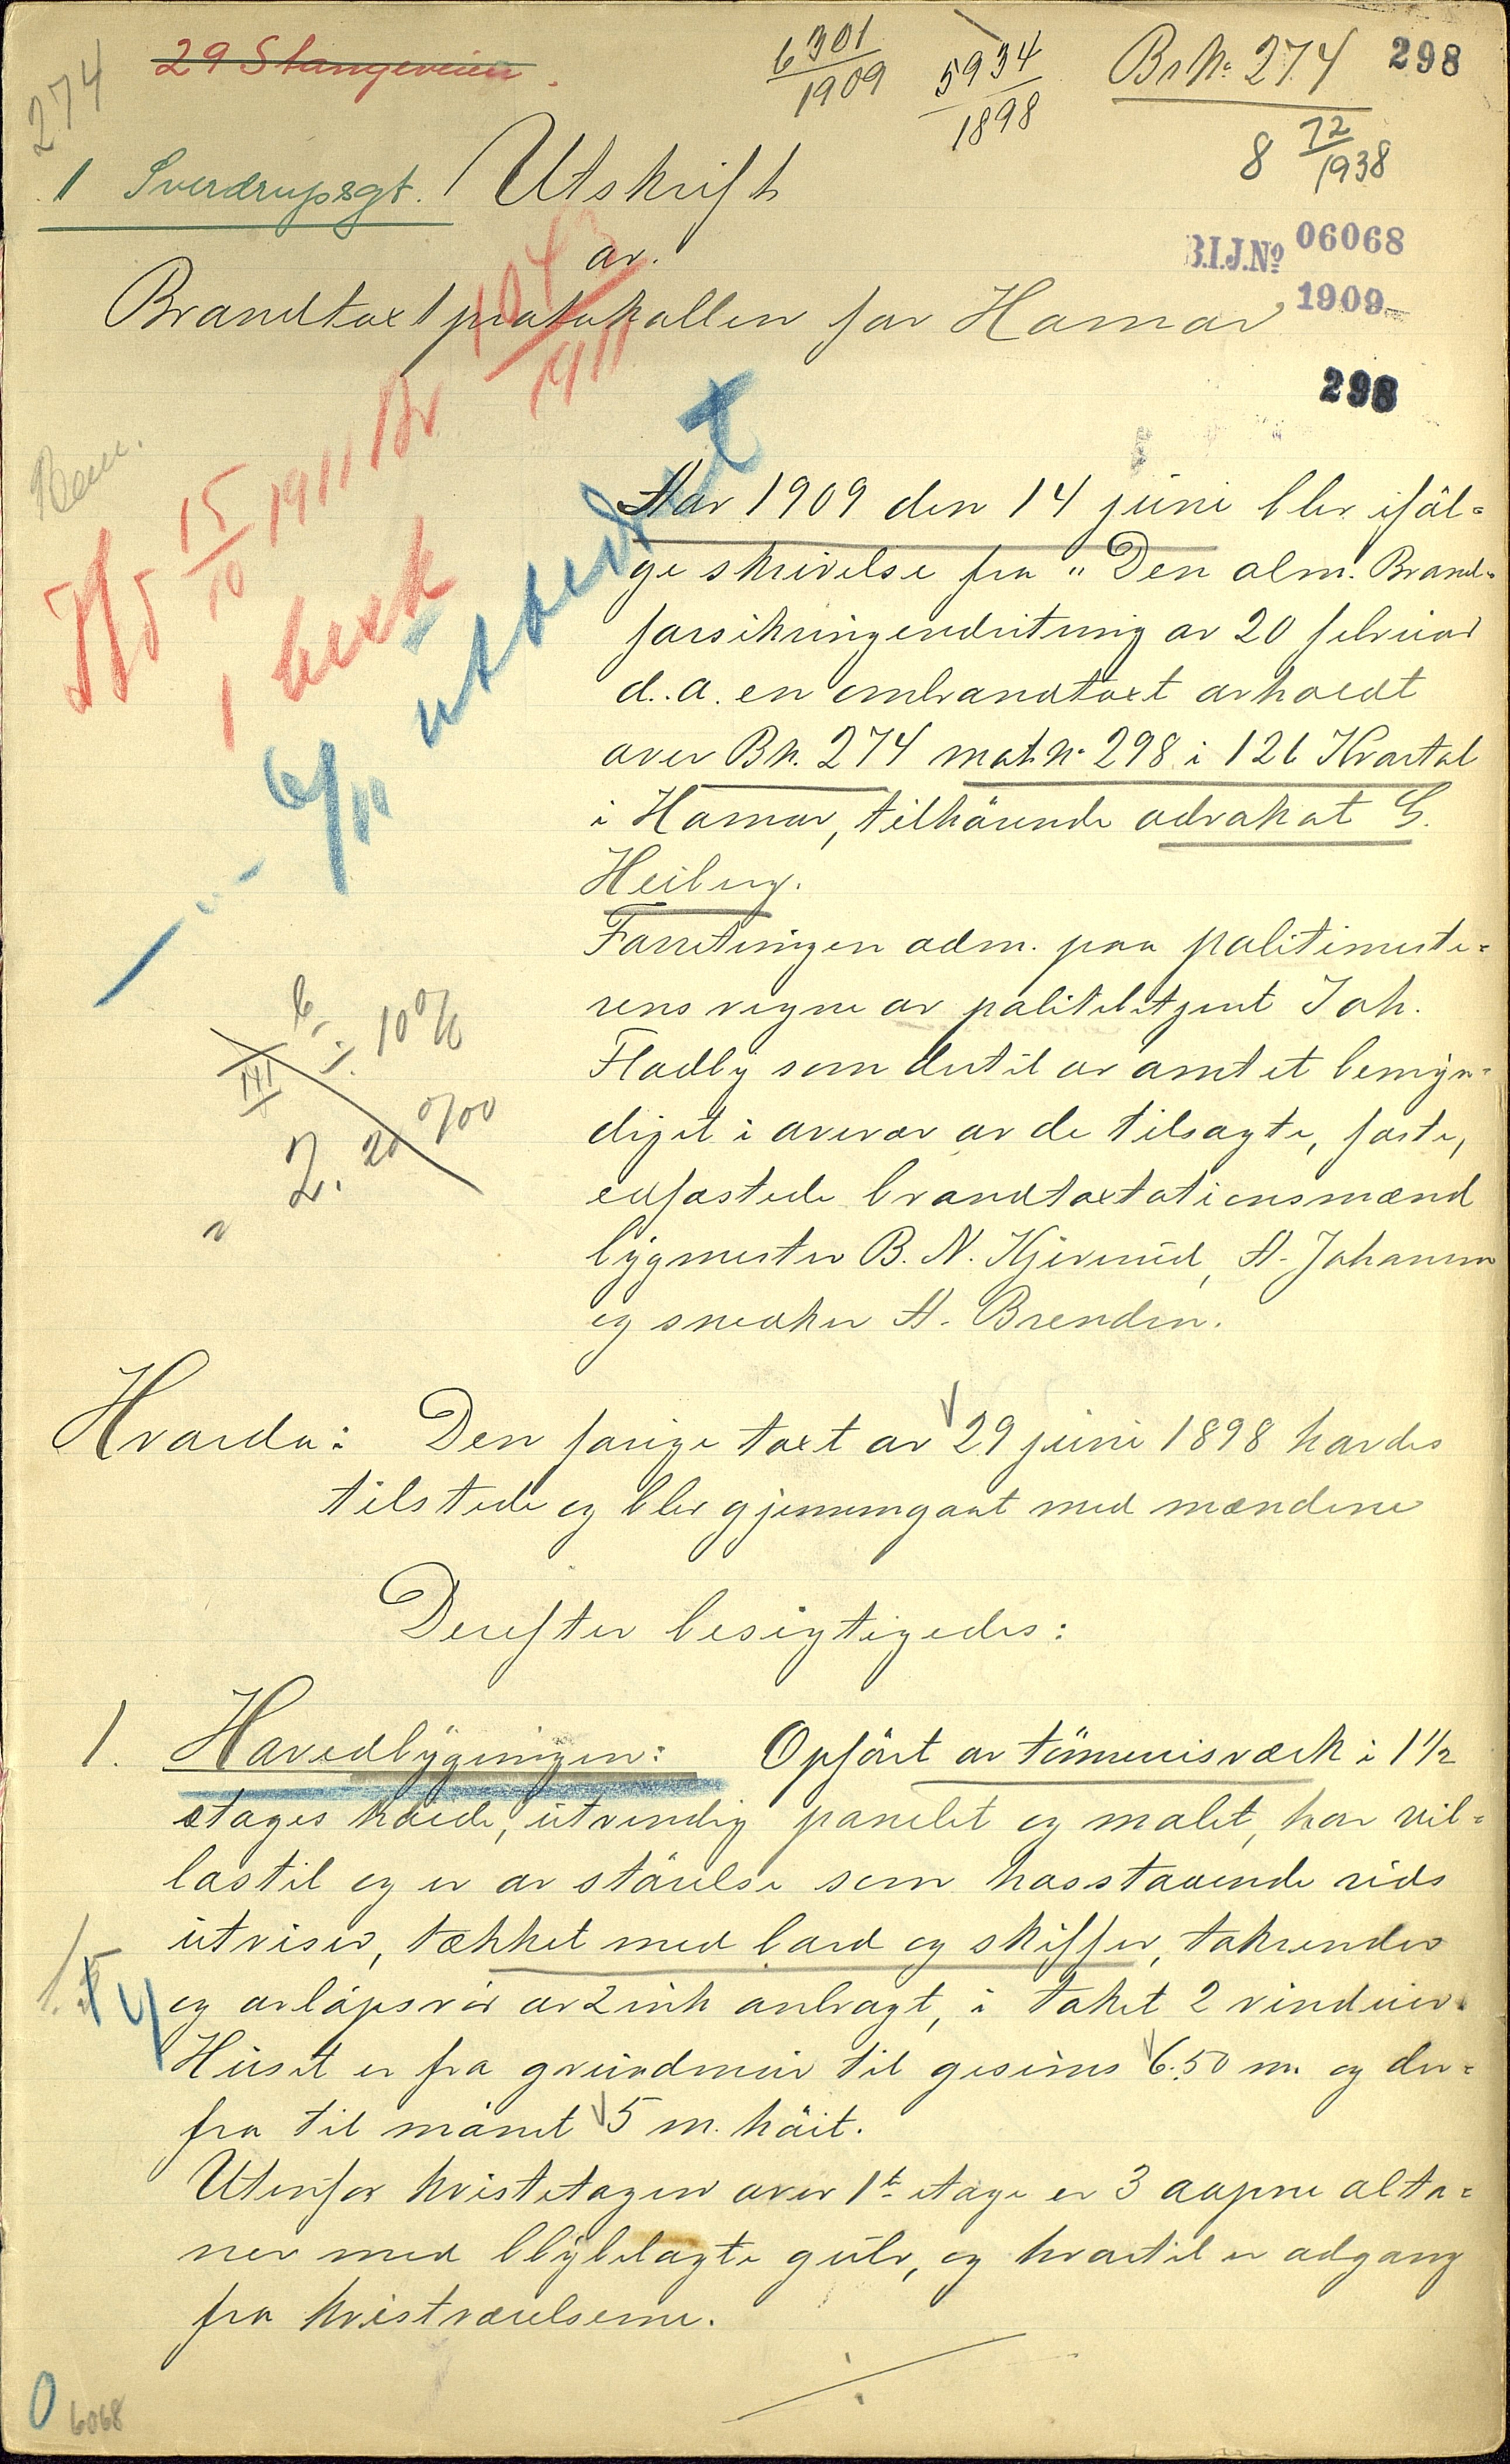 274
29 Stangeveien.
6301
1909
5934
1898
Br No 274
298
8 72
1938
1 Sverdrupsgt.
Utskrift
av
Brandtaxtprotokollen for Hamar
B.I.J.No 06068
1909
298
1043
1911
15
10 1911 Br
1 besk
utskrevet
6/11
Bem.
b. ÷ 10 %
III
2. 20 0/00
Aar 1909 den 14 juni blev iföl-
ge skrivelse fra "Den alm. Brand-
forsikringsindretning av 20 februar
d.a. en ombrandtaxt avholdt
over Bn. 274 mat. No 298 i 126 Kvartal
i Hamar, tilhörende advokat G.
Heiberg.
Forretningen adm. paa politimeste-
rens vegne av politibetjent Joh.
Fladby som dertil av amtet bemyn-
diget i overvær av de tilsagte, faste,
edfæstede brandtaxtationsmænd
bygmester B. N. Kjernud, A. Johansen
og snedker A. Brenden.
Hvorda: Den forige taxt av 29 juni 1898 havdes
tilstede og blev gjennemgaat med mændene
Derefter besigtigedes:
1. Hovedbygningen: Opfört av tömmerværk i 1 1/2
etages höide, utvendig panelet og malet, har vil-
lastil og er av störelse som hosstaaende rids
utviser, tækket med bord og skiffer, takrender
og avlöpsrör av zink anbragt, i taket 2 vinduer.
Huset er fra grundmur til gesims 6.50 m. og der-
fra til mönet 5 m. höit.
Utenfor kvistetagen over 1ste etage er 3 aapne alta-
ner med blybelagte gulv, og hvortil er adgang
fra kvistværelserne.
÷
0 6068